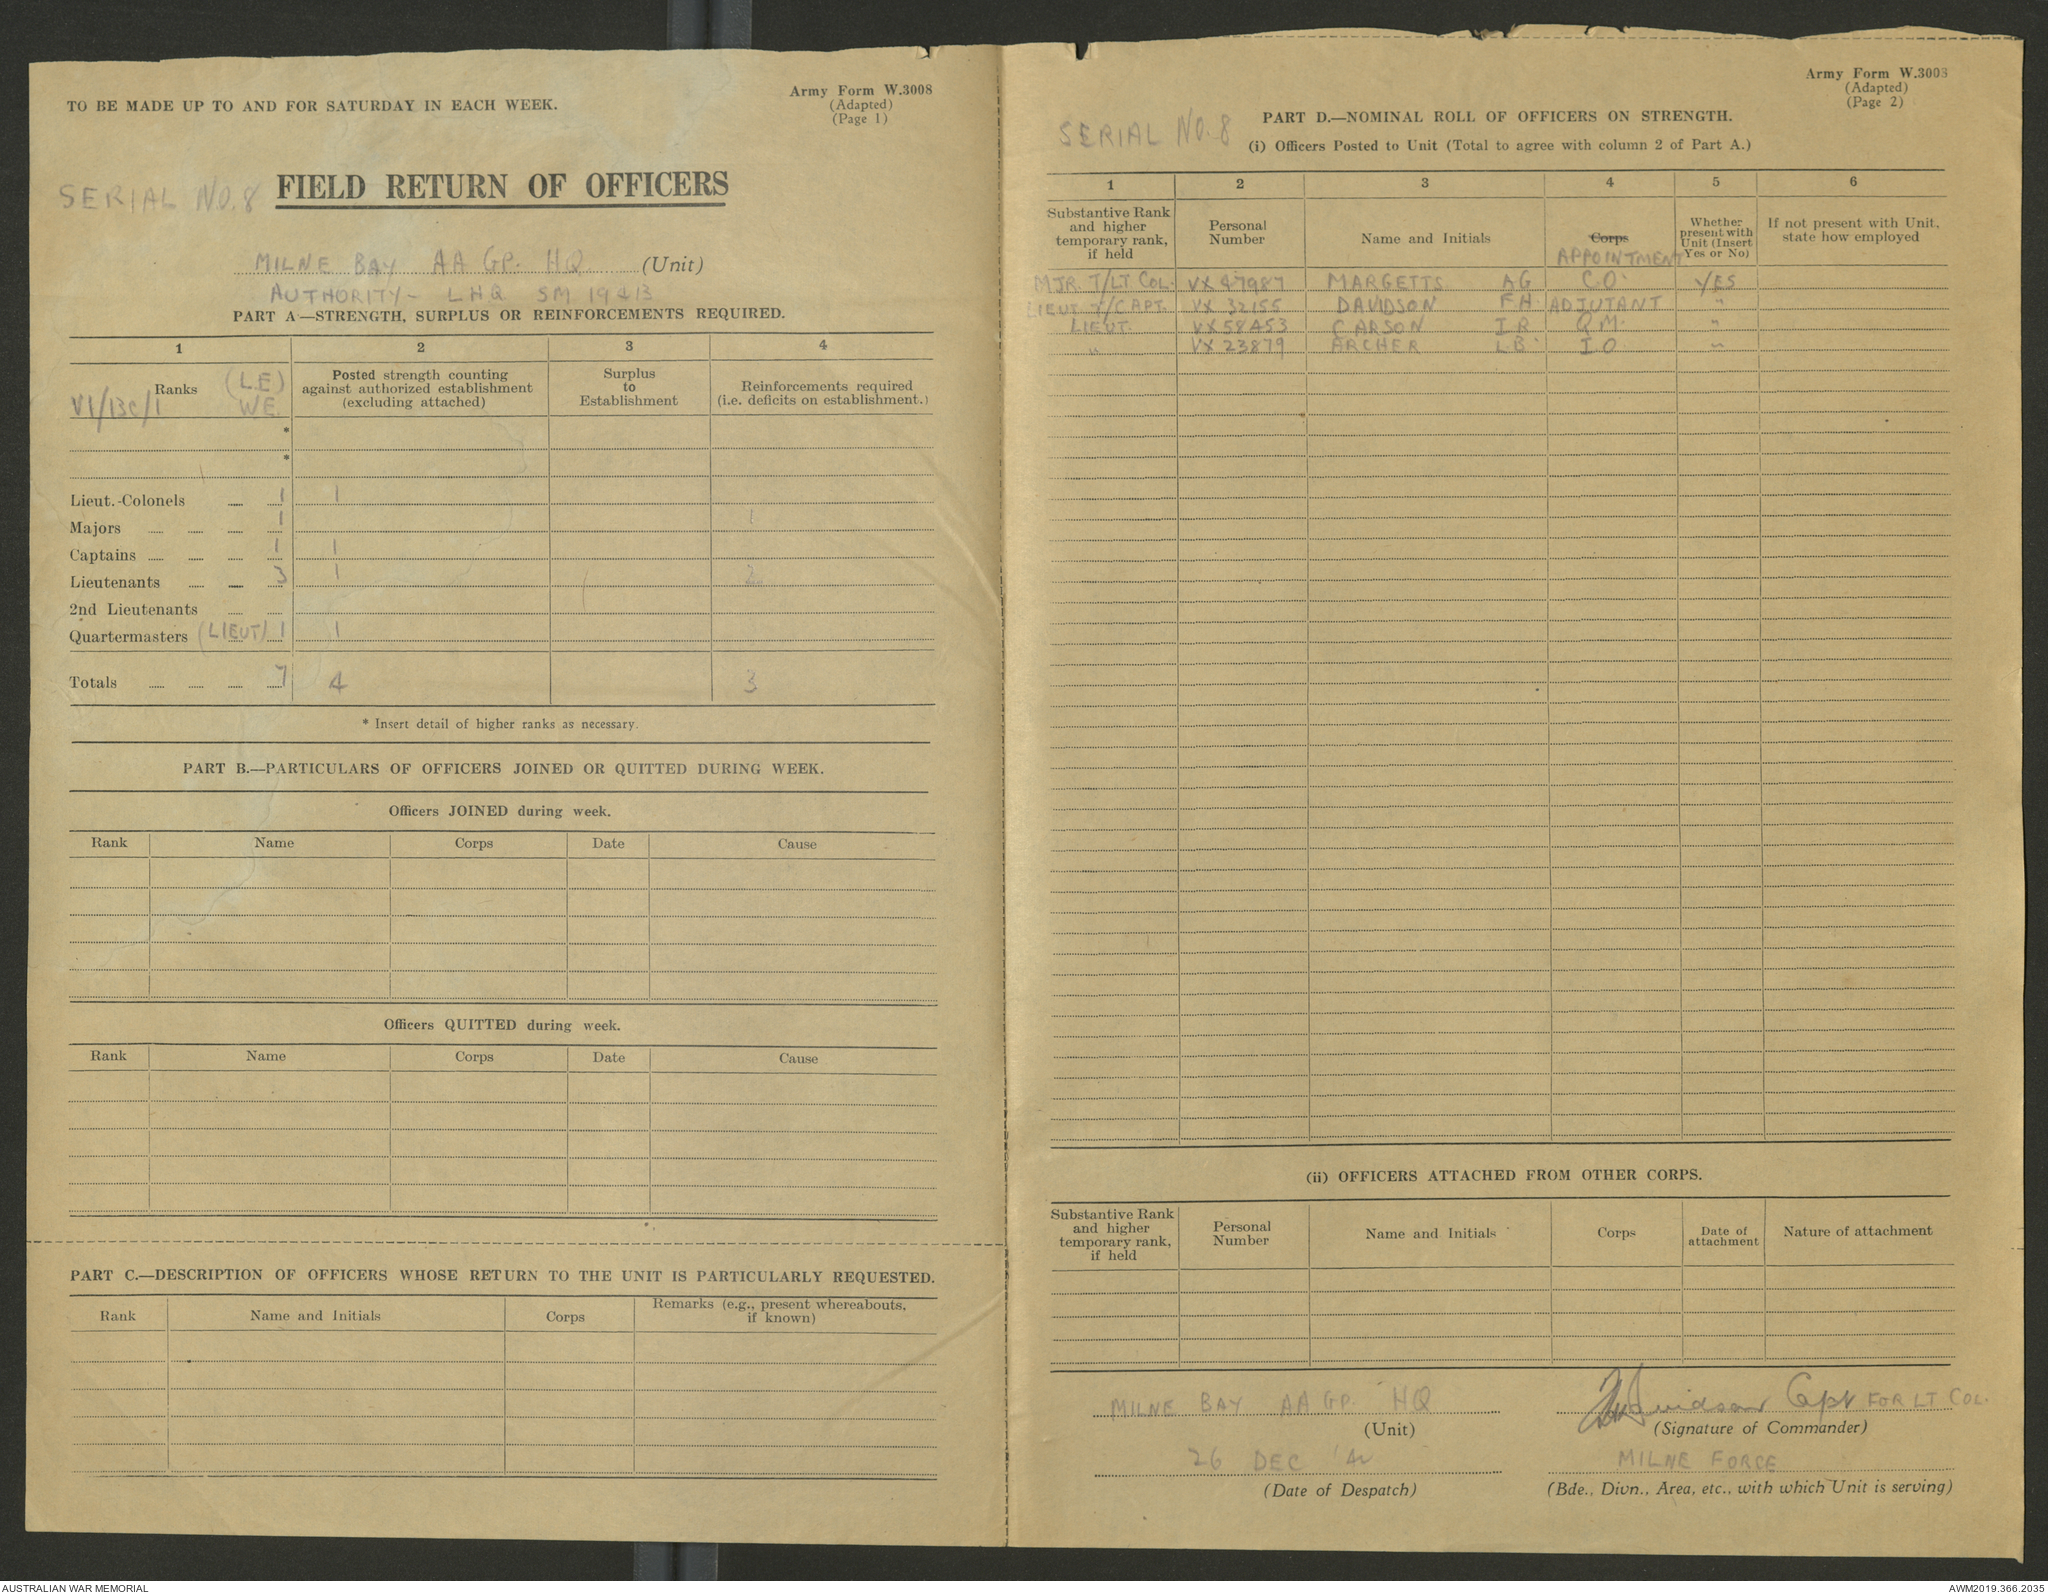 TO BE MADE UP TO AND FOR SATURDAY IN EACH WEEK.
Army Form W.3008
(Adapted)
(Page 1)
SERIAL NO. 8 FIELD RETURN OF OFFICERS
MILNE BAY AA GP. HQ (Unit)
AUTHORITY - LHQ SM 19413
PART A—STRENGTH, SURPLUS OR REINFORCEMENTS REQUIRED.
1 2 3 4
Ranks (L.E) VI/13C/1 WE.
Posted strength counting against authorized establishment (excluding attached)
Surplus to Establishment
Reinforcements required (i.e. deficits on establishment.)
*
*
Lieut.-Colonels 1 1
Majors 1 1
Captains 1 1
Lieutenants 3 1 2
2nd Lieutenants
Quartermasters (LIEUT) 1 1
Totals 7 4 3
* Insert detail of higher ranks as necessary.
PART B.—PARTICULARS OF OFFICERS JOINED OR QUITTED DURING WEEK.
Officers JOINED during week.
Rank Name Corps Date Cause
Officers QUITTED during week.
Rank Name Corps Date Cause
PART C.—DESCRIPTION OF OFFICERS WHOSE RETURN TO THE UNIT IS PARTICULARLY REQUESTED.
Rank Name and Initials Corps Remarks (e.g., present whereabouts, if known)
Army Form W.3008
(Adapted)
(Page 2)
SERIAL NO. 8
PART D.—NOMINAL ROLL OF OFFICERS ON STRENGTH.
(i) Officers Posted to Unit (Total to agree with column 2 of Part A.)
1 2 3 4 5 6
Substantive Rank and higher temporary rank, if held
Personal Number
Name and Initials
Corps
APPOINTMENT
Whether present with Unit (Insert Yes or No)
If not present with Unit, state how employed
MJR T/LT COL. VX 47987 MARGETTS AG C.O. YES
LIEUT T/CAPT. VX 32155 DAVIDSON F.H ADJUTANT "
LIEUT. VX58453 CARSON I R QM. "
" VX 23879 ARCHER L B I O "
(ii) OFFICERS ATTACHED FROM OTHER CORPS.
Substantive Rank and higher temporary rank, if held
Personal Number
Name and Initials
Corps
Date of attachment
Nature of attachment
MILNE BAY AA GP. HQ
(Unit)
Davidson Capt FOR LT COL.
(Signature of Commander)
26 DEC '42
(Date of Despatch)
MILNE FORCE
(Bde., Divn., Area, etc., with which Unit is serving)
AUSTRALIAN WAR MEMORIAL
AWM2019.366.2035